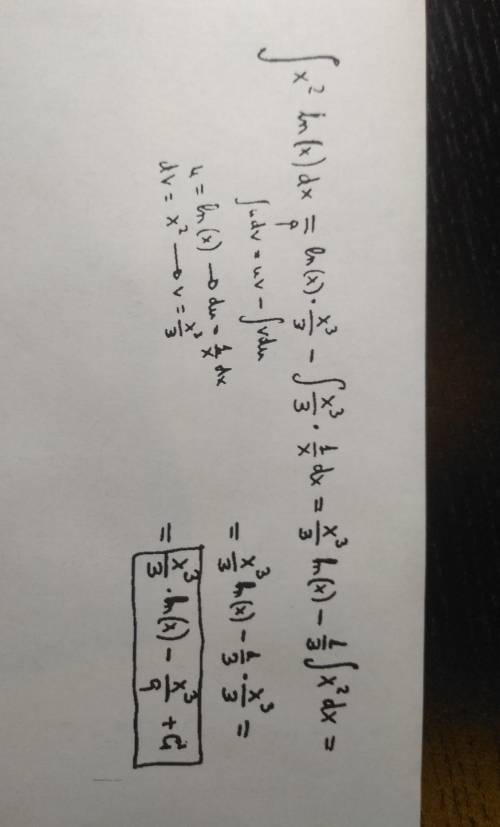 ∫ x² ln(x) dx = ln(x) · x³/3 − ∫ x³/3 · 1/x dx = x³/3 ln(x) − 1/3 ∫ x² dx =
∫ u dv = uv − ∫ v du
u = ln(x) → du = 1/x dx
dv = x² → v = x³/3
= x³/3 ln(x) − 1/3 · x³/3 =
= x³/3 · ln(x) − x³/9 + C